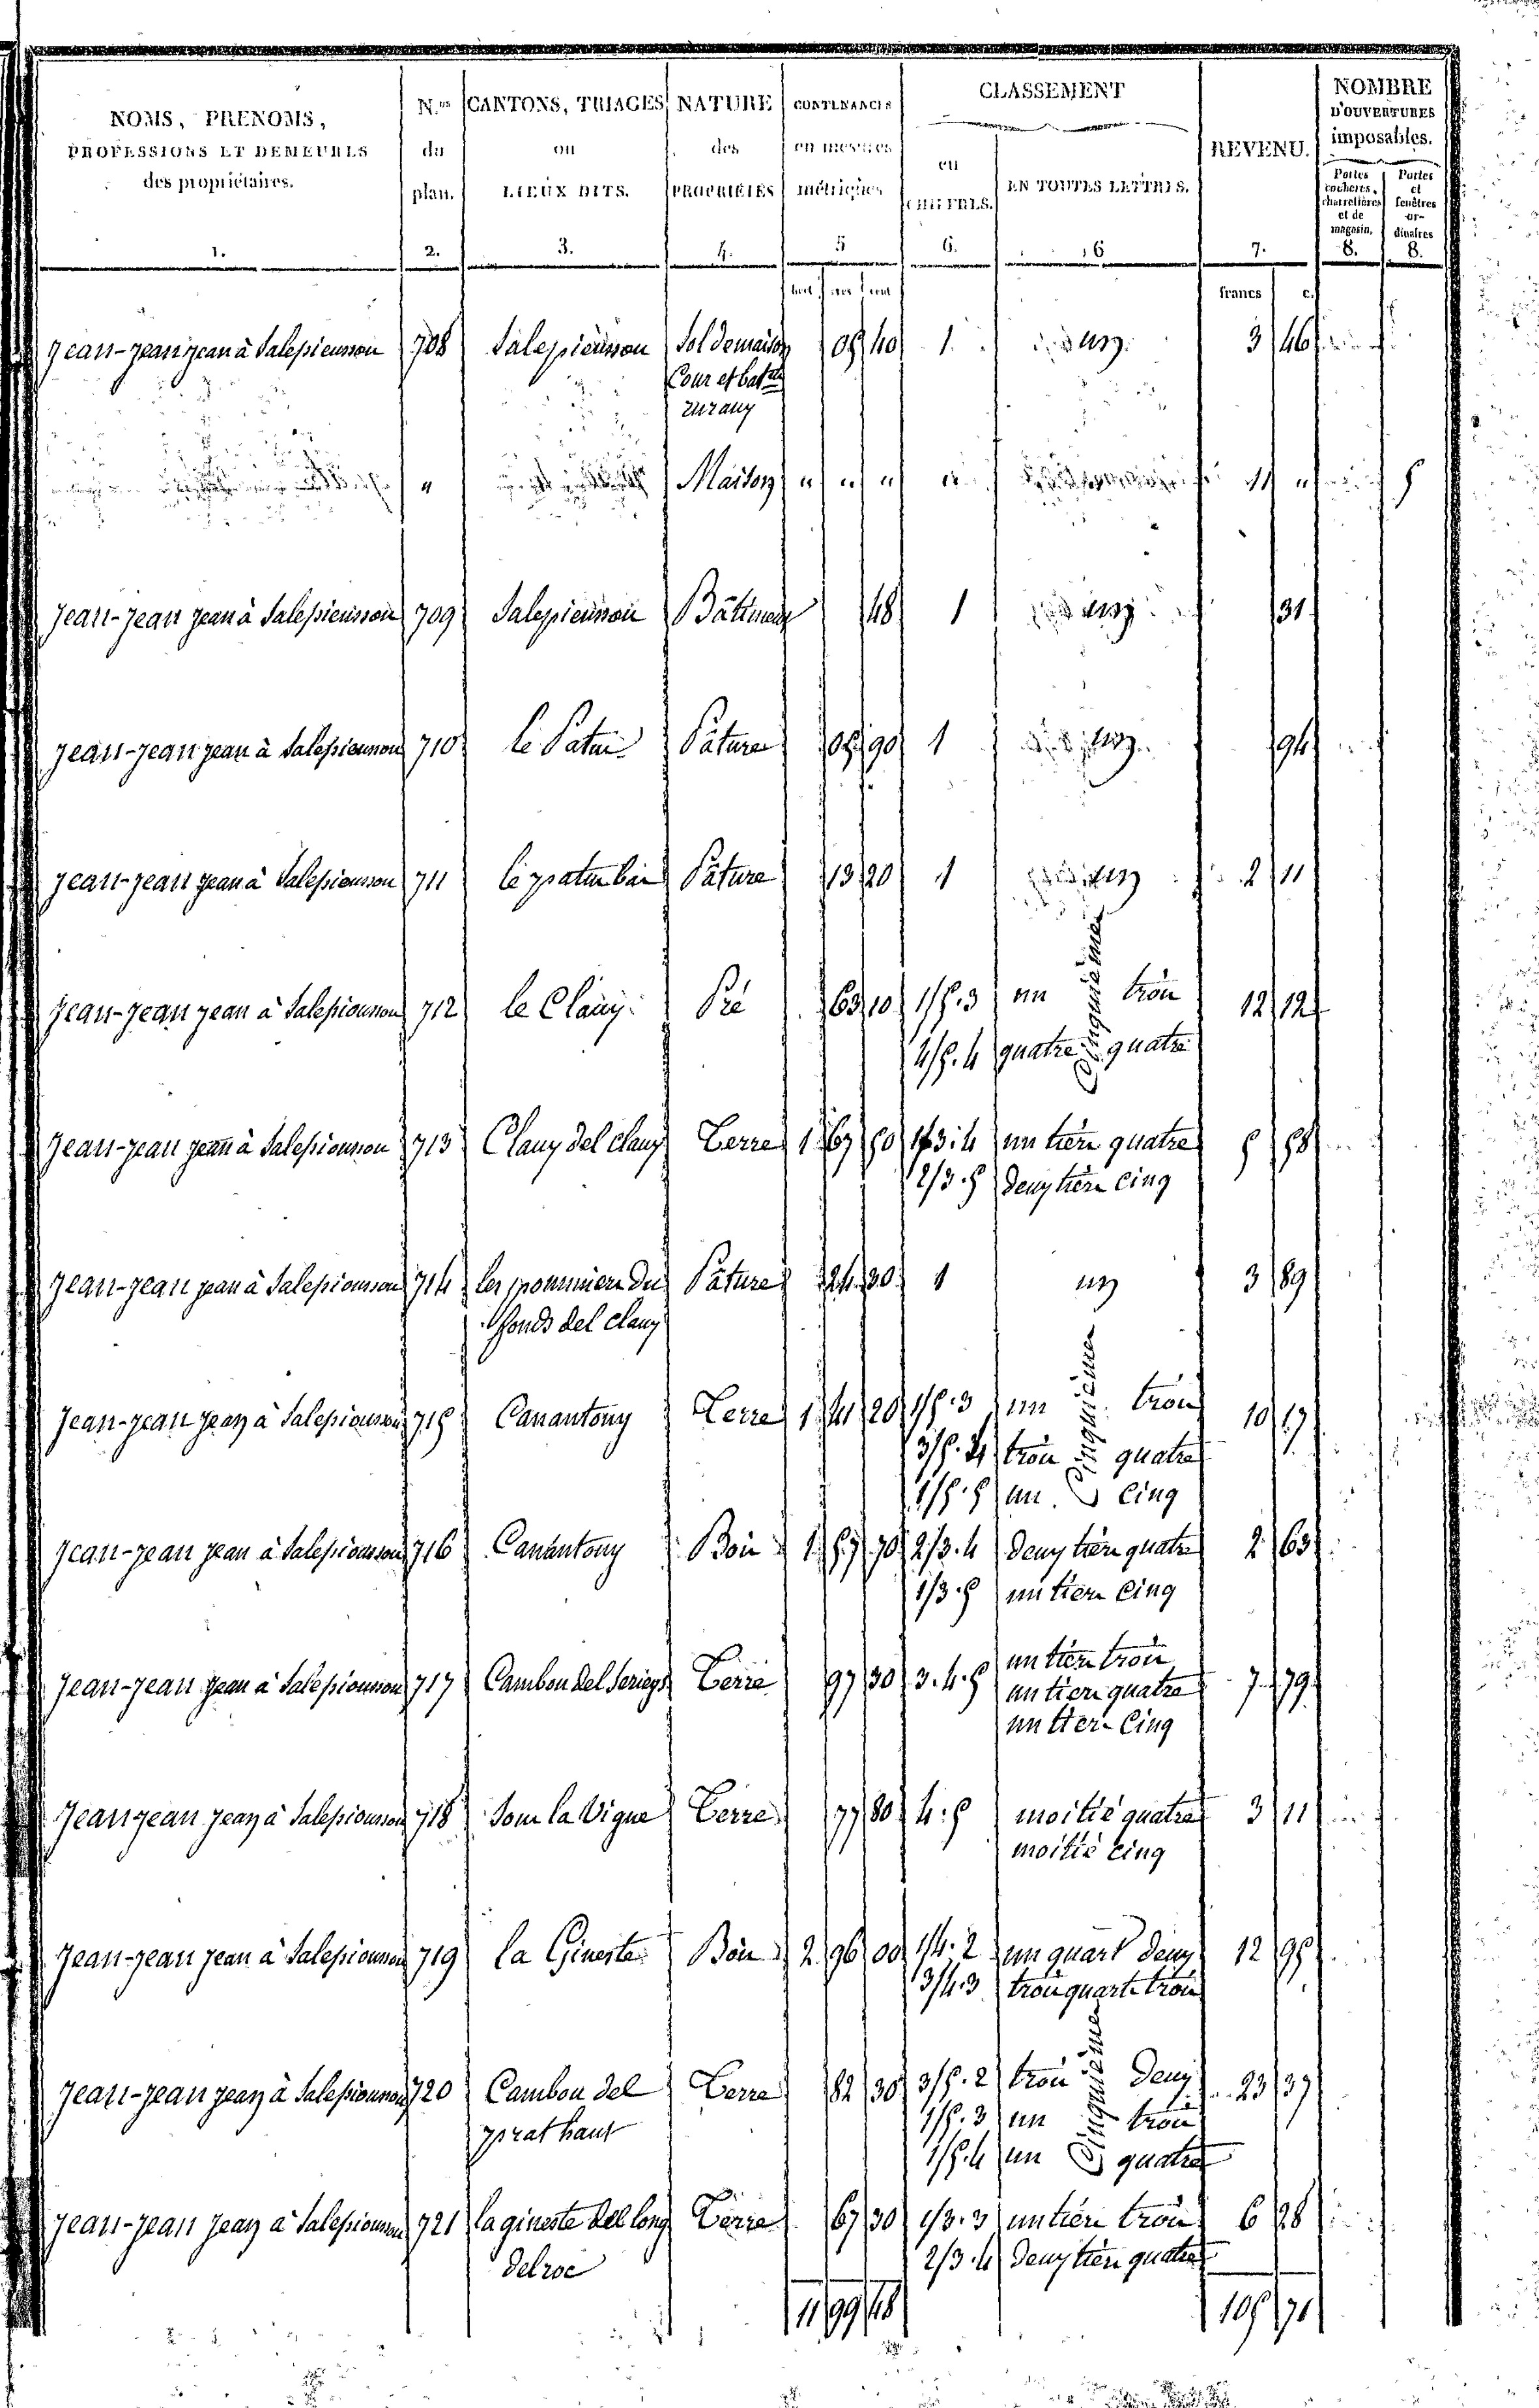 NOMS, PRENOMS, PROFESSIONS ET DEMEURES des propriétaires. 1.
N.os du plan. 2.
CANTONS, TRIAGES ou LIEUX DITS. 3.
NATURE des PROPRIÉTÉS 4.
CONTENANCES en mesures métriques 5
CLASSEMENT
en CHIFFRES. 6.
EN TOUTES LETTRES. 6
REVENU. 7.
NOMBRE D'OUVERTURES imposables.
Portes cochères, charretières et de magasin. 8.
Portes et fenêtres ordinaires 8.
francs c.
Jean-Jean Jean à Salepieusson 708 Salepieusson Sol de maison 05 40 1 un 3 46
Cour et bat
rurauy
" Maison " " " " 11 " 5
Jean-Jean Jean à Salepieusson 709 Salepieusson Bâtiment 48 1 un 31
Jean-Jean Jean à Salepieusson 710 le Patui Pature 05 90 1 un 94
Jean-Jean Jean à Salepieusson 711 le pratu bas Pature 13 20 1 un 2 11
Jean-Jean Jean à Salepieusson 712 le Clauy Pré 63 10 1/5.3 un cinquieme trois 12 12
4/5.4 quatre quatre
Jean-Jean Jean à Salepieusson 713 Clauy del clauy Terre 1 67 50 1/3.4 un tiers quatre 5 58
2/3.5 deuy tiers cinq
Jean-Jean Jean à Salepieusson 714 les pommiers du Pature 24 30 1 un 3 89
fonds del clauy
Jean-Jean Jean à Salepieusson 715 Canantony Terre 1 41 20 1/5.3 un cinquieme trois 10 17
3/5.4 trois quatre
1/5.5 un cinq
Jean-Jean Jean à Salepieusson 716 Canantony Bois 1 57 70 2/3.4 deuy tiers quatre 2 63
1/3.5 un tiers cinq
Jean-Jean Jean à Salepieusson 717 Cambon del serieys Terre 97 30 3.4.5 un tiers trois 7 79
un tiers quatre
un tiers cinq
Jean Jean Jean à Salepieusson 718 Sous la Vigne Terre 77 80 4.5 moitié quatre 3 11
moitié cinq
Jean-Jean Jean à Salepieusson 719 la Gineste Bois 2 96 00 1/4.2 un quart deuy 12 95
3/4.3 trois quarts trois
Jean-Jean Jean à Salepieusson 720 Cambon del Terre 82 30 3/5.2 trois cinquieme deuy 23 37
prat haut 1/5.3 un trois
1/5.4 un quatre
Jean-Jean Jean à Salepieusson 721 la gineste del long Terre 67 30 1/3.3 un tiers trois 6 28
del roc 2/3.4 deuy tiers quatre
11 99 48 105 71